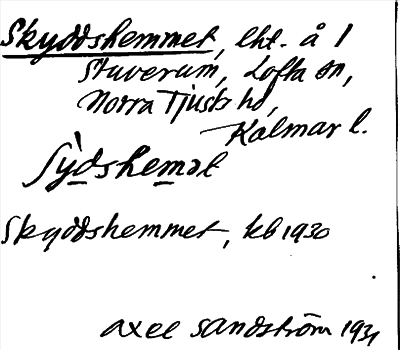 Skyddshemmet, lht. å 1
Stuverum, Lofta sn,
Norra Tjusts hd,
Kalmar l.
ʃy̆dshemət
Skyddshemmet, kb 1930
Axel Sandström 1931